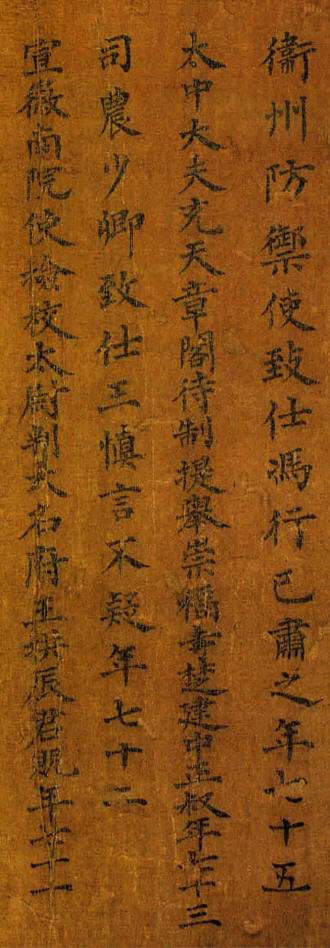 衛州防禦使致仕馮行己肅之年七十五
太中大夫充天章閣待制提舉崇福宮楚建中正叔年七十三
司農少卿致仕王慎言不疑年七十二
宣徽南院使檢校太尉判大名府王拱辰君貺年七十一